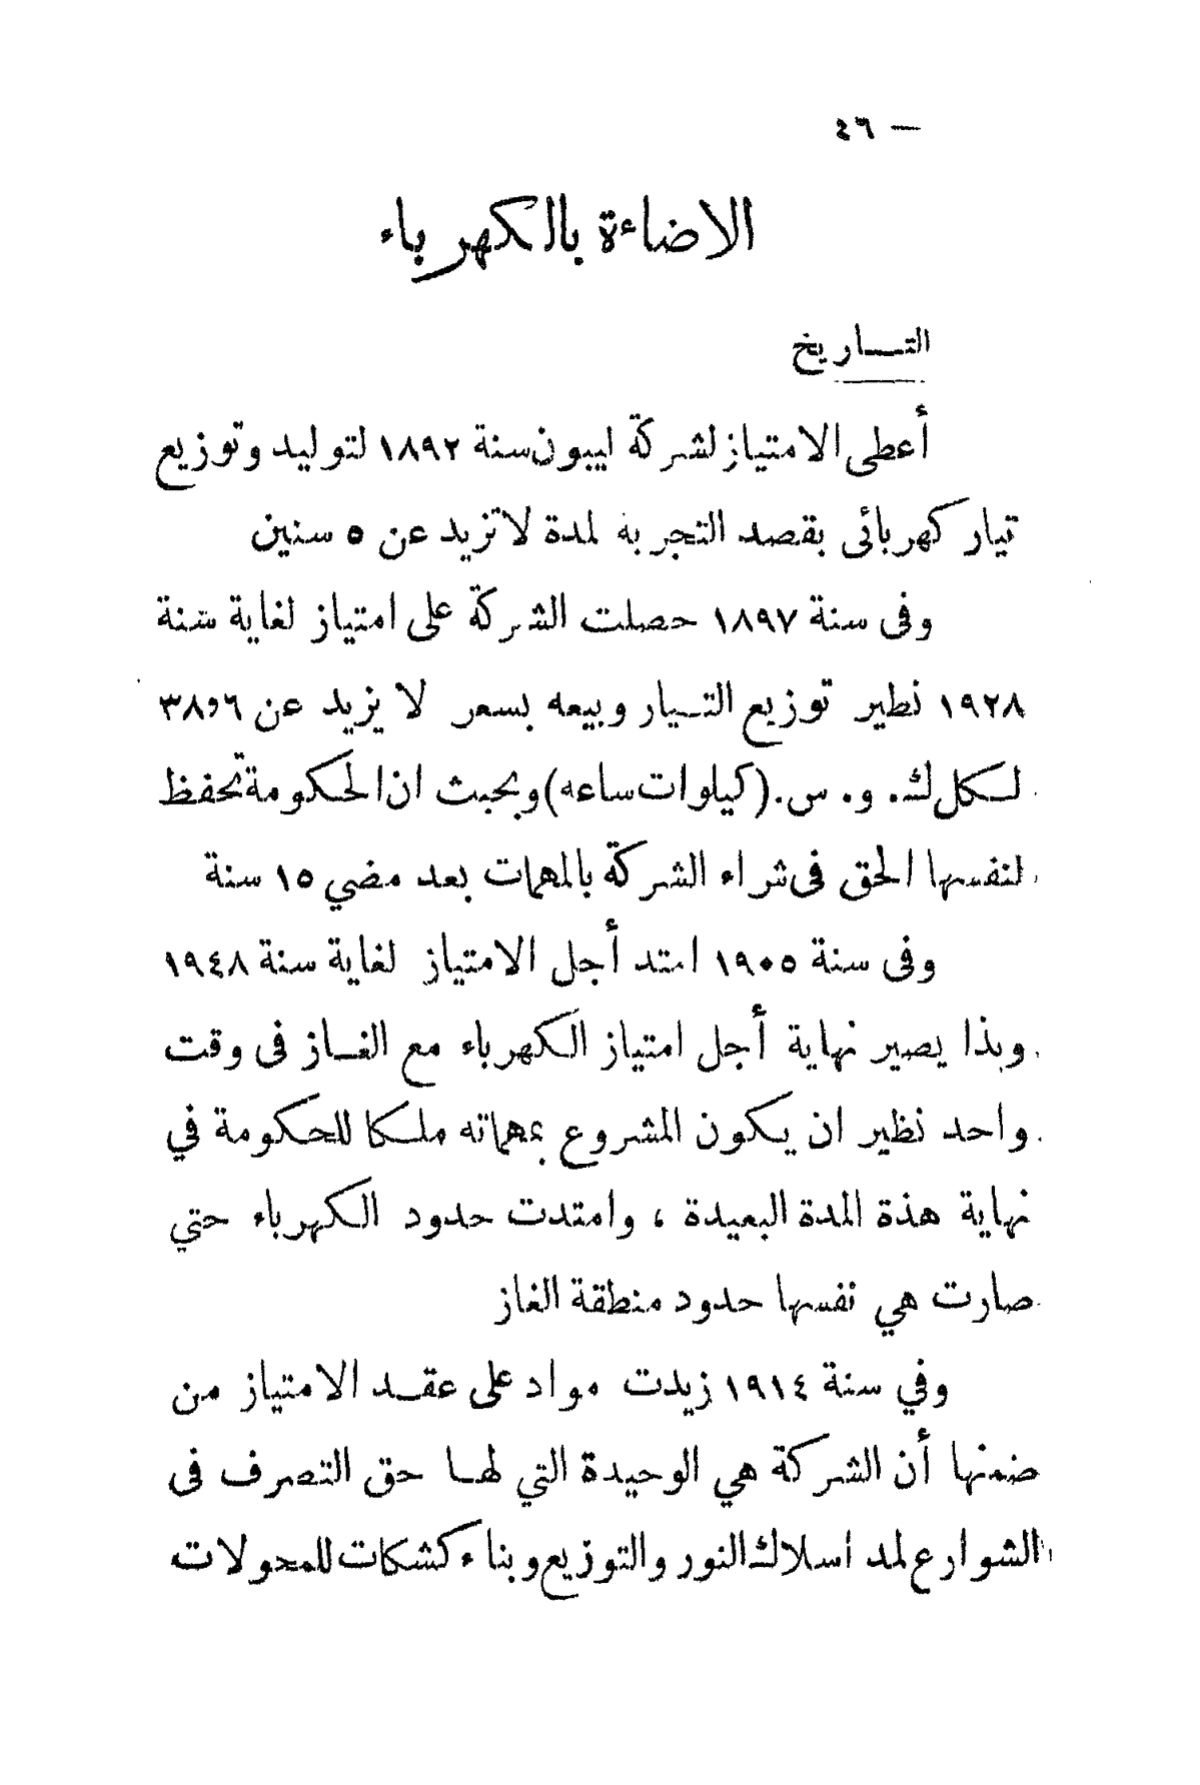 — ٤٦
الاضاءة بالكهرباء
التاريخ
أعطى الامتياز لشركة ليبون سنة ١٨٩٢ لتوليد وتوزيع
تيار كهربائى بقصد التجربه لمدة لاتزيد عن ٥ سنين
وفى سنة ١٨٩٧ حصلت الشركة على امتياز لغاية سنة
١٩٢٨ نظير توزيع التيار وبيعه بسعر لا يزيد عن ٣٨٫٦
لكل ك. و. س. (كيلوات ساعه) وبحيث ان الحكومة تحفظ
لنفسها الحق فى شراء الشركة بالمهمات بعد مضي ١٥ سنة
وفى سنة ١٩٠٥ امتد أجل الامتياز لغاية سنة ١٩٤٨
وبذا يصير نهاية أجل امتياز الكهرباء مع الغاز فى وقت
واحد نظير ان يكون المشروع بمهماته ملكا للحكومة في
نهاية هذة المدة البعيدة ، وامتدت حدود الكهرباء حتي
صارت هي نفسها حدود منطقة الغاز
وفي سنة ١٩١٤ زيدت مواد على عقد الامتياز من
ضمنها أن الشركة هي الوحيدة التي لها حق التصرف فى
الشوارع لمد اسلاك النور والتوزيع وبناء كشكات للمحولات